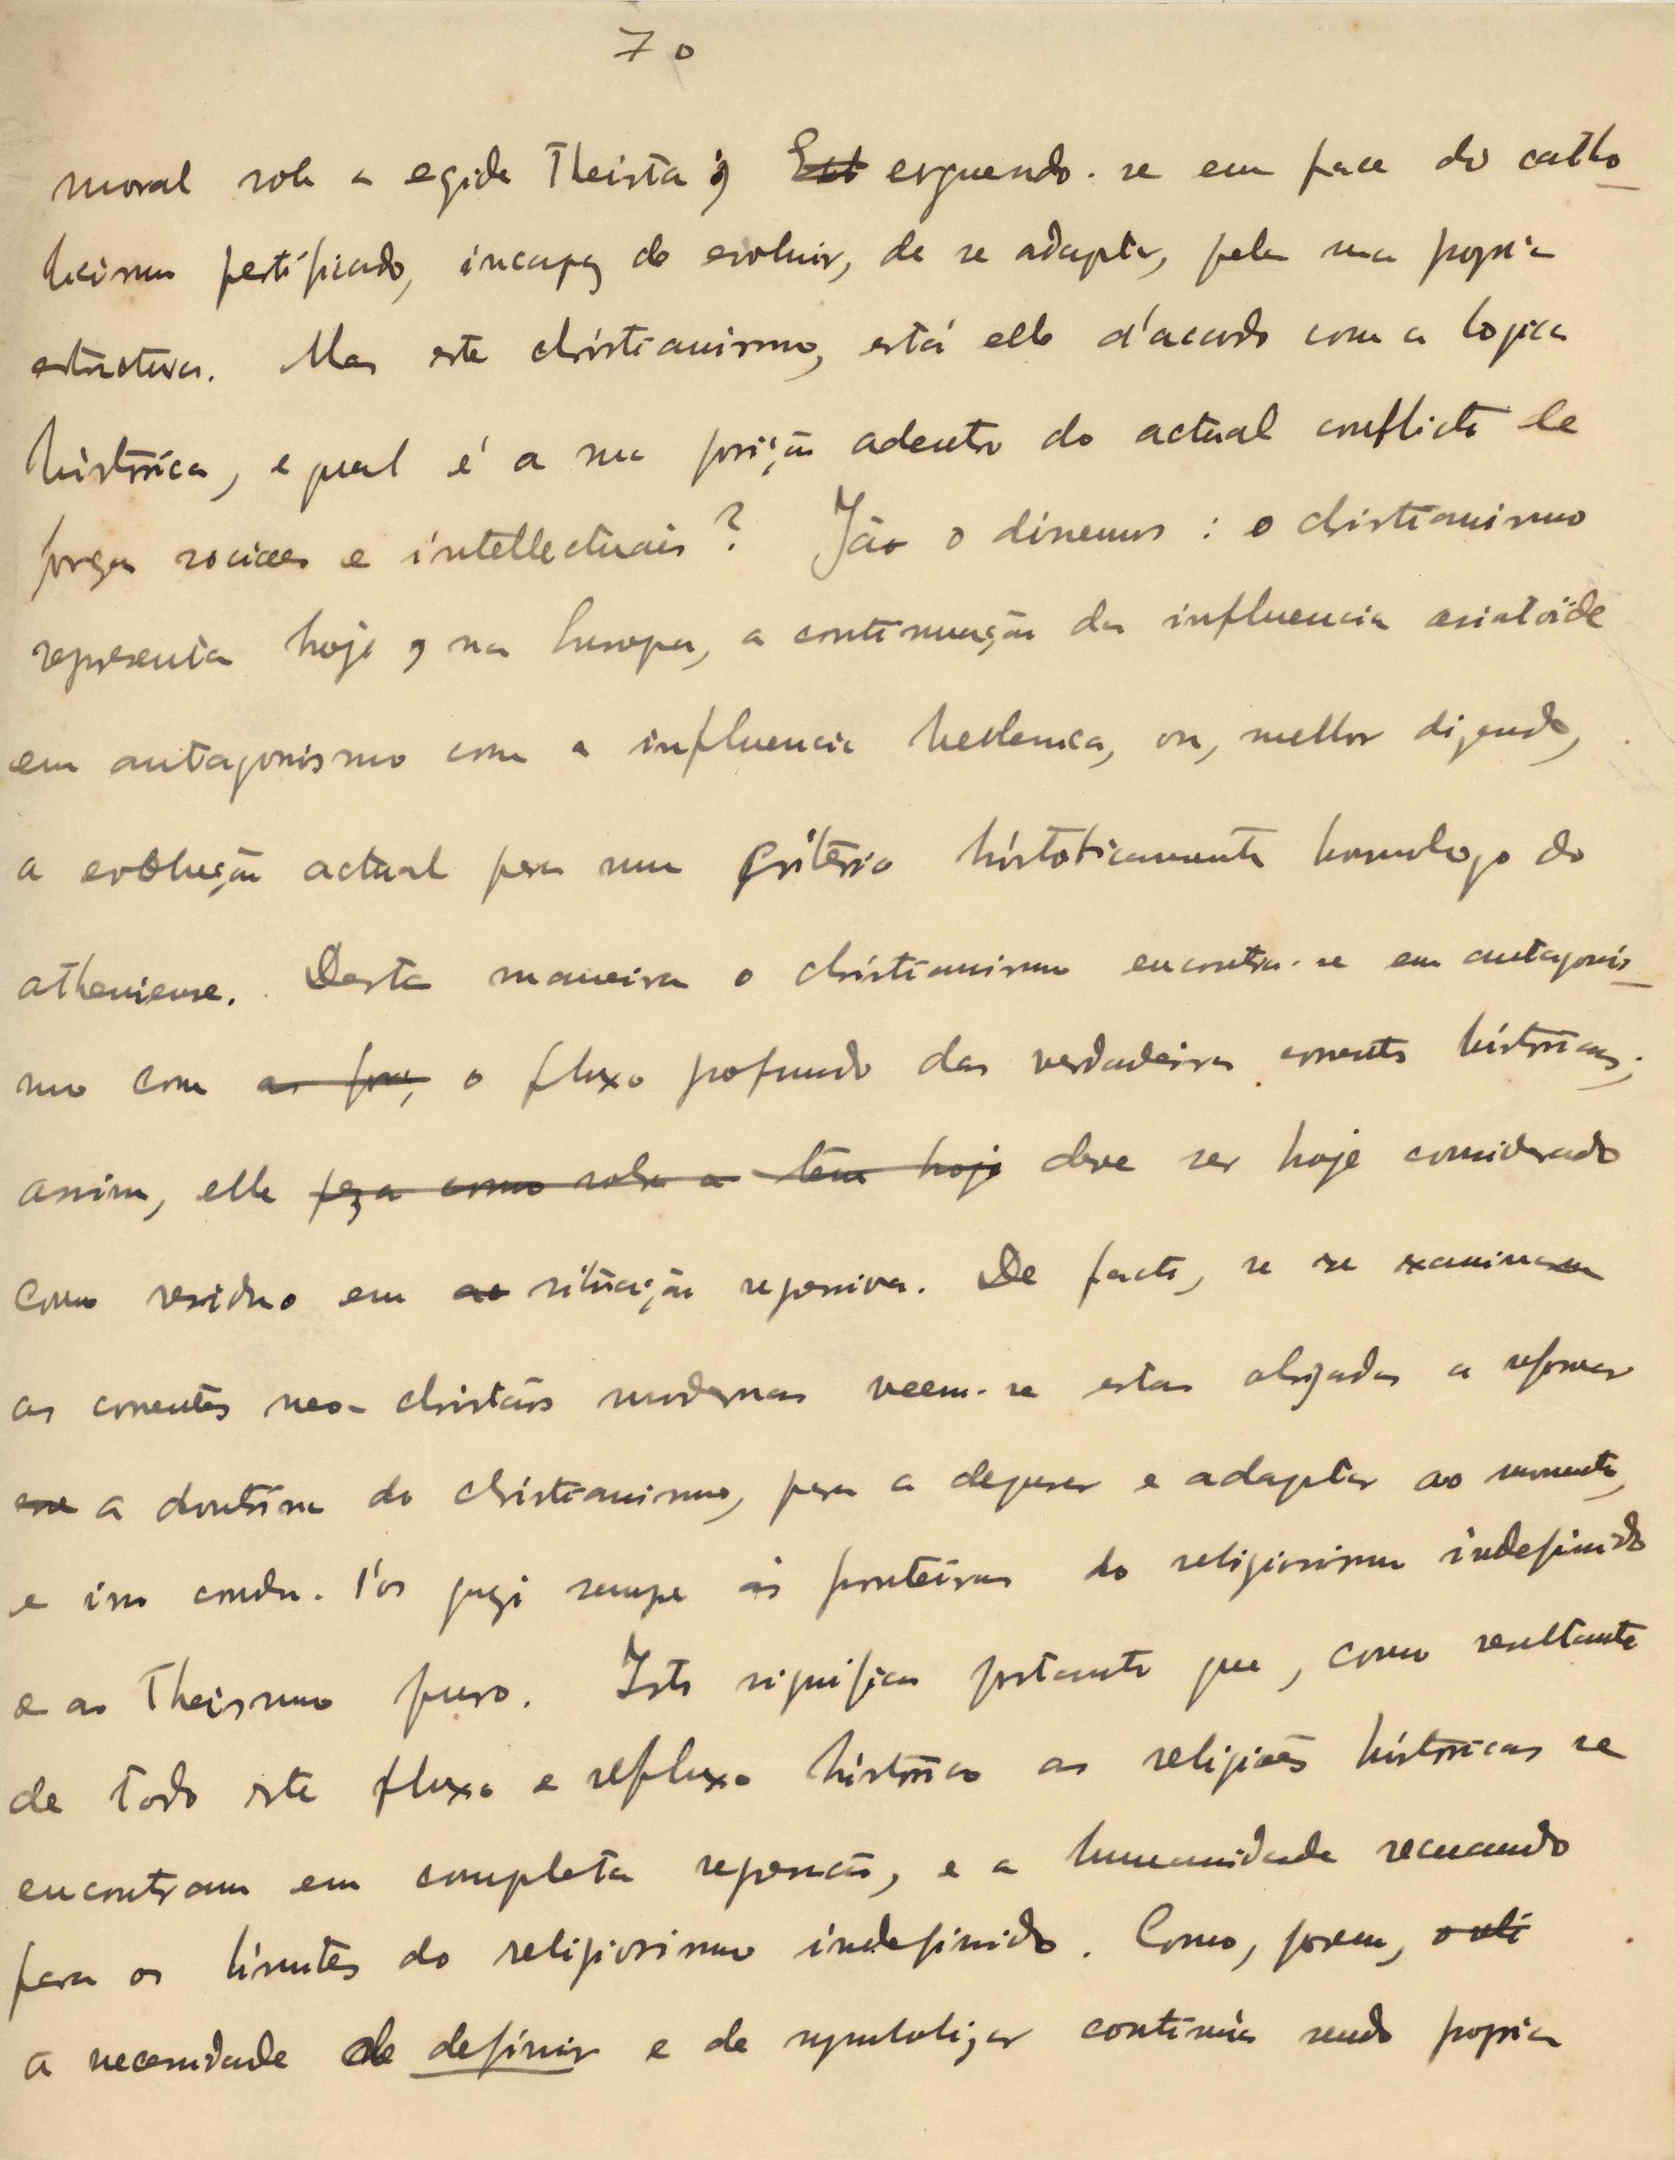 70
moral sob a egide Theista; Est erguendo-se em face do catho-
licismo petrificado, incapaz de evoluir, de se adaptar, pela sua propria
estructura. Mas este christianismo, está elle d'acordo com a logica
historica, e qual é a sua posição adentro do actual conflicto de
forças sociaes e intellectuaes? Já o dissemos: o christianismo
representa hoje, na Europa, a continuação da influencia asiatoïde
em antagonismo com a influencia hellenica, ou, melhor dizendo,
a evolução actual para um criterio historicamente homologo do
atheniense. Desta maneira o christianismo encontra-se em antagonis-
mo com as forç, o fluxo profundo das verdadeiras correntes historicas;
assim, elle peza como sobre a tem hoje deve ser hoje considerado
como residuo em situação regressiva. De facto, se se examinarem
as correntes neo-christãs modernas veem-se estas obrigadas a reformar
a doutrina do christianismo, para a depurar e adaptar ao momento,
e isso condu-l'os quasi sempre ás fronteiras do religiosismo indefinido
e ao Theismo puro. Isto significa portanto que, como resultante
de todo este fluxo e refluxo historico as religiões historicas se
encontram em completa regressão, e a humanidade recuando
para os limites do religiosismo indefinido. Como, porem,
a necessidade de definir e de symbolizar continúa sendo propria